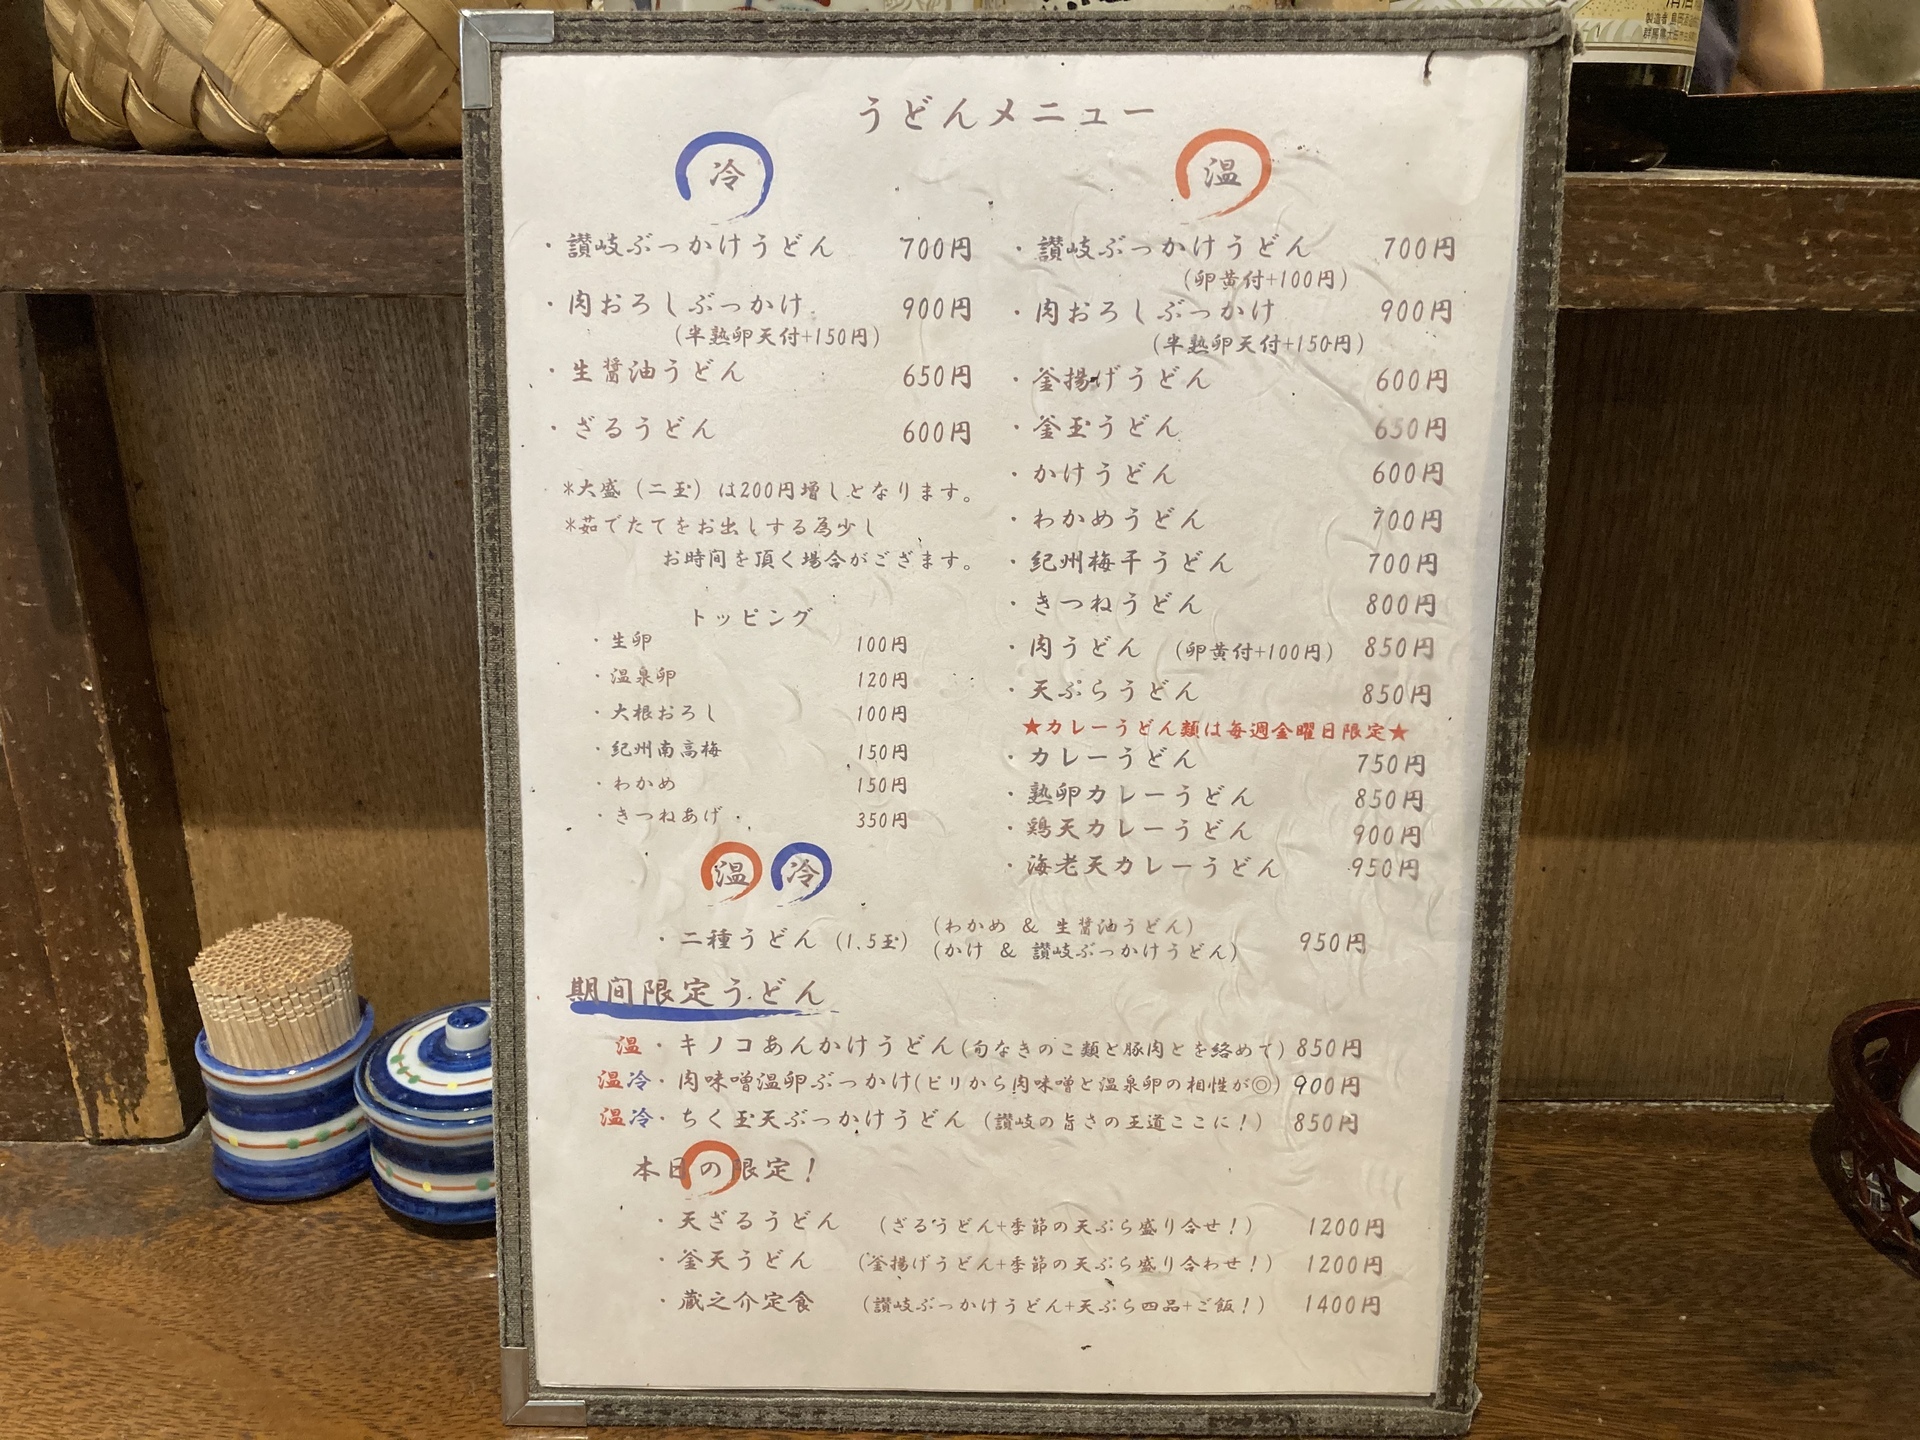 うどんメニュー
冷
・讃岐ぶっかけうどん 700円
・肉おろしぶっかけ 900円
(半熟卵天付+150円)
・生醤油うどん 650円
・ざるうどん 600円
*大盛(二玉)は200円増しとなります。
*茹でたてをお出しする為少し
お時間を頂く場合がございます。
トッピング
・生卵 100円
・温泉卵 120円
・大根おろし 100円
・紀州南高梅 150円
・わかめ 150円
・きつねあげ 350円
温
・讃岐ぶっかけうどん 700円
(卵黄付+100円)
・肉おろしぶっかけ 900円
(半熟卵天付+150円)
・釜揚げうどん 600円
・釜玉うどん 650円
・かけうどん 600円
・わかめうどん 700円
・紀州梅干うどん 700円
・きつねうどん 800円
・肉うどん (卵黄付+100円) 850円
・天ぷらうどん 850円
★カレーうどん類は毎週金曜日限定★
・カレーうどん 750円
・熟卵カレーうどん 850円
・鶏天カレーうどん 900円
・海老天カレーうどん 950円
温 冷
・二種うどん (1.5玉) (わかめ & 生醤油うどん) 950円
(かけ & 讃岐ぶっかけうどん)
期間限定うどん
温・キノコあんかけうどん(旬なきのこ類と豚肉とを絡めて) 850円
温冷・肉味噌温卵ぶっかけ(ピリから肉味噌と温泉卵の相性が◎) 900円
温冷・ちく玉天ぶっかけうどん (讃岐の旨さの王道ここに!) 850円
本日の限定!
・天ざるうどん (ざるうどん+季節の天ぷら盛り合せ!) 1200円
・釜天うどん (釜揚げうどん+季節の天ぷら盛り合わせ!) 1200円
・蔵之介定食 (讃岐ぶっかけうどん+天ぷら四品+ご飯!) 1400円